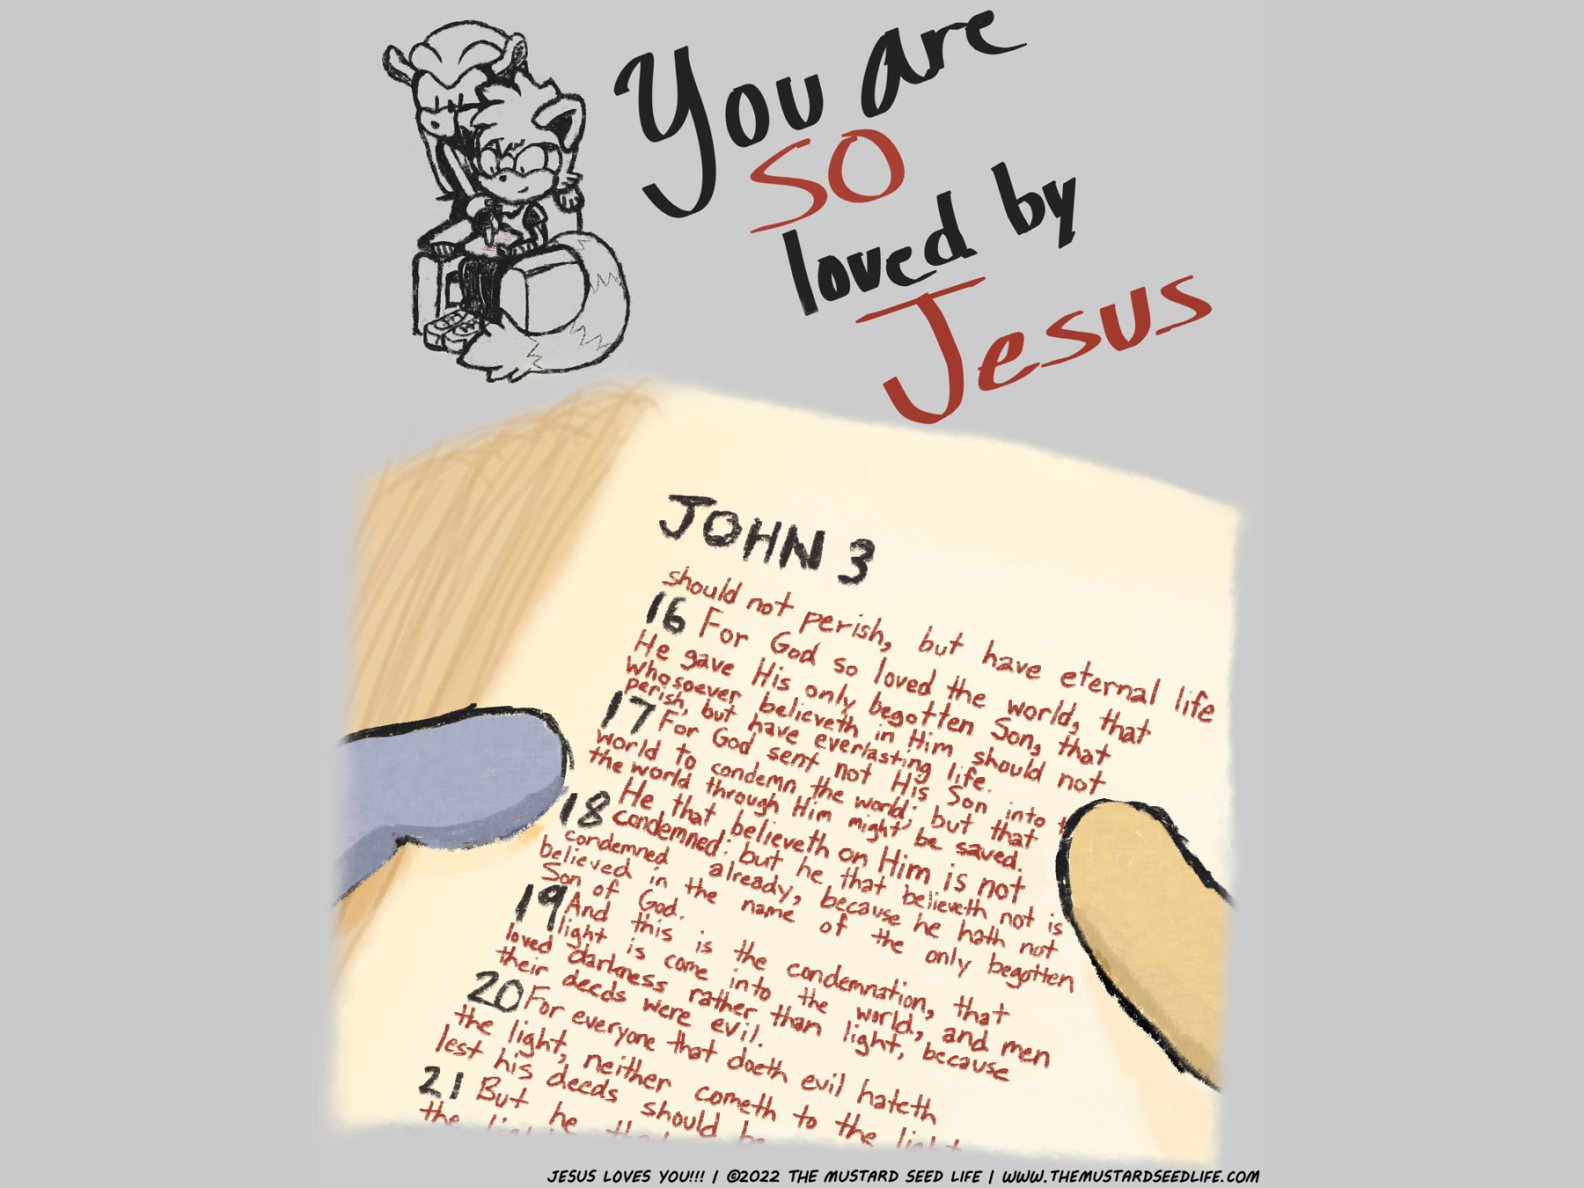 You are
SO
loved by
Jesus
JOHN 3
should not perish, but have eternal life
16 For God so loved the world, that
He gave His only begotten Son, that
whosoever believeth in Him should not
perish, but have everlasting life.
17 For God sent not His Son into
world to condemn the world; but that
the world through Him might be saved.
18 He that believeth on Him is not
condemned: but he that believeth not is
condemned already, because he hath not
believed in the name of the only begotten
Son of God.
19 And this is the condemnation, that
light is come into the world, and men
loved darkness rather than light, because
their deeds were evil.
20 For everyone that doeth evil hateth
the light, neither cometh to the light
lest his deeds should be
21 But he
the
JESUS LOVES YOU!!! | ©2022 THE MUSTARD SEED LIFE | WWW.THEMUSTARDSEEDLIFE.COM